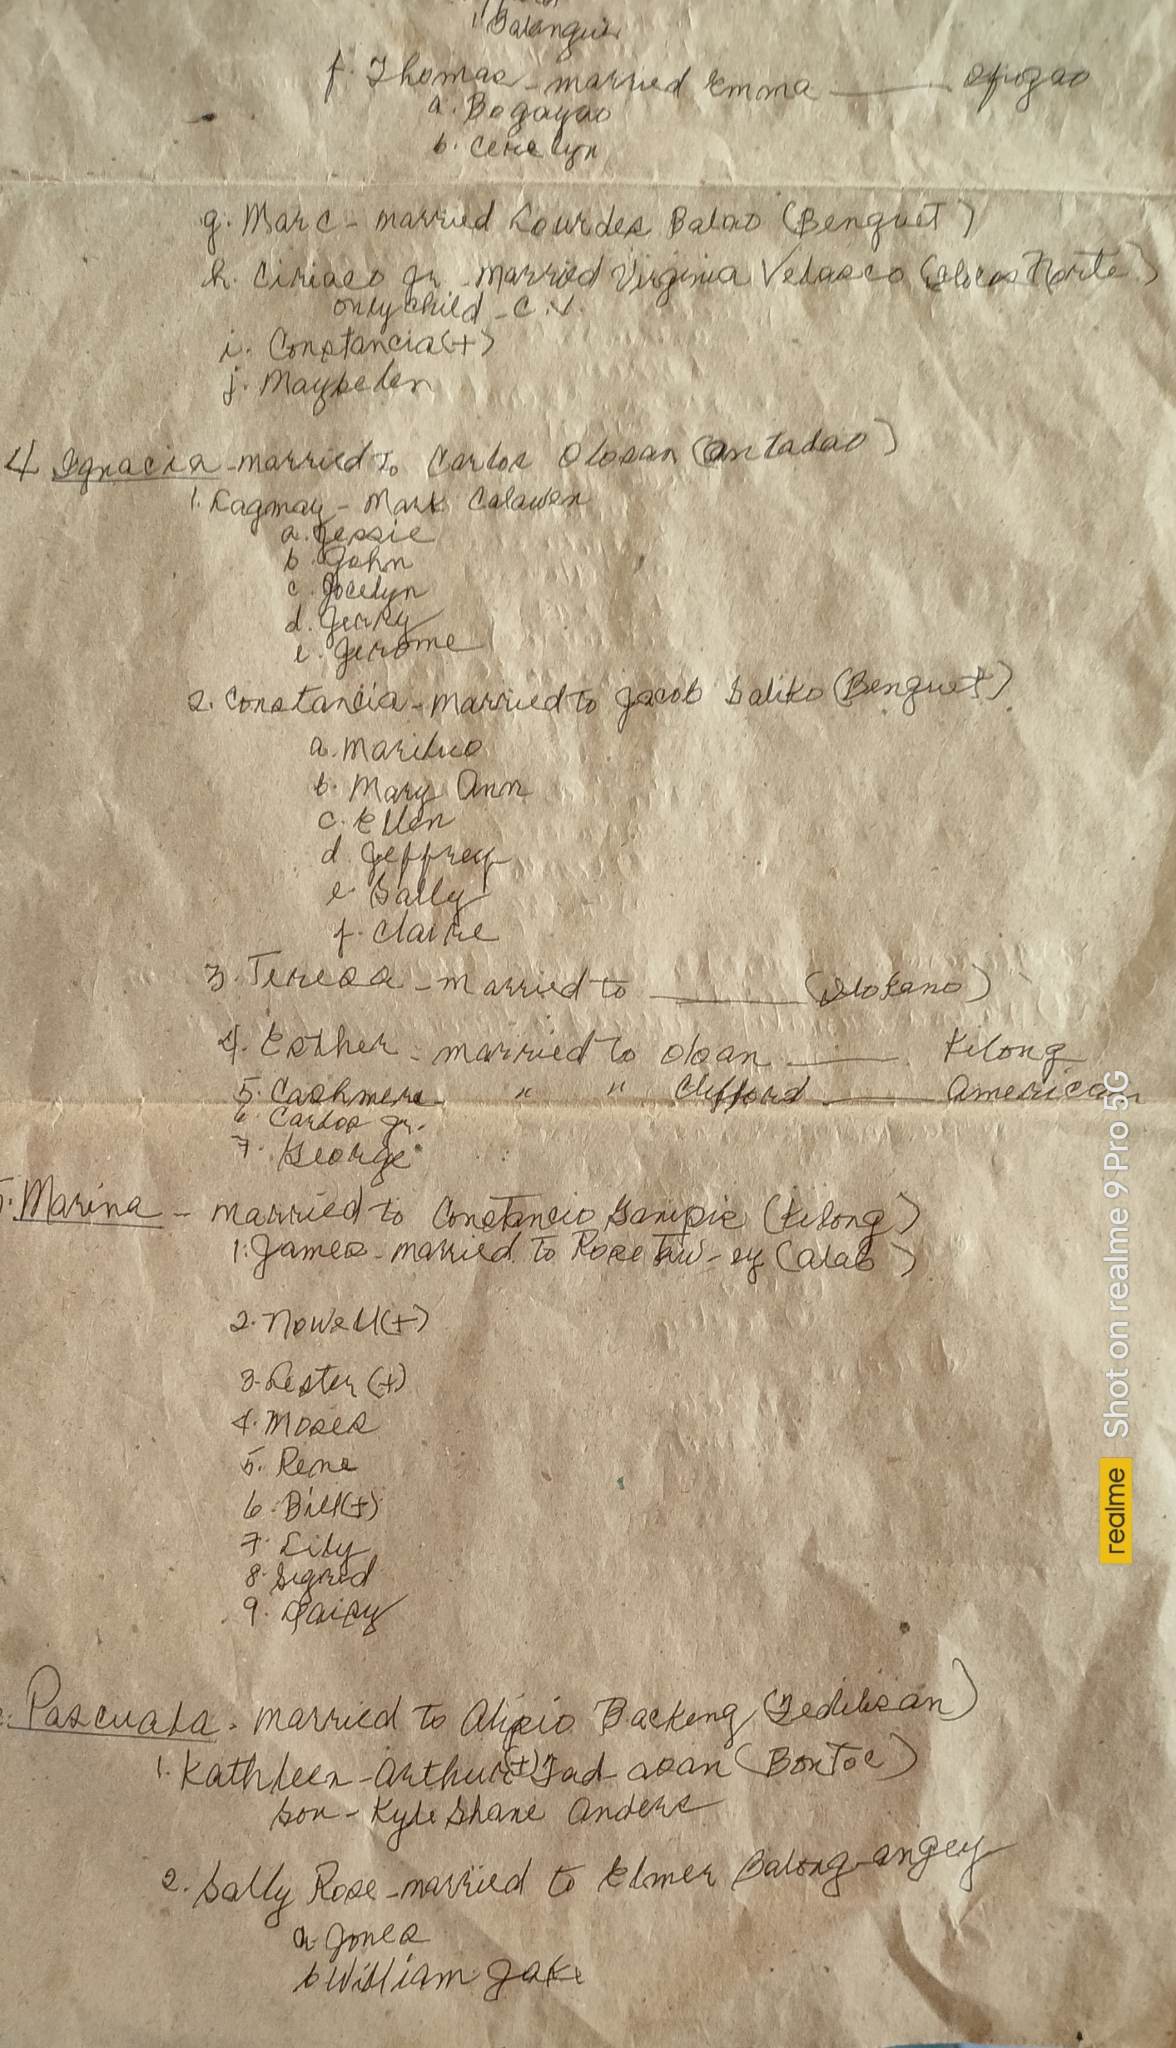 f. Thomas - married Emma ____ Apogao
a. Bogayao
b. Cerelyn
g. Marc - married Lourdes Balao (Benguet)
h. Ciriaco Jr. - married Virginia Velasco (Ilocos Norte)
only child - C.V.
i. Constancia (+)
j. Maybelen
4. Ignacia - married to Carlos Olosan (Antadao)
1. Lagmay - Mark Calawen
a. Jessie
b. John
c. Jocelyn
d. Gerky
e. Jerome
2. Constancia - married to Jacob Saliko (Benguet)
a. Mariluo
b. Mary Ann
c. Ellen
d. Jeffrey
e. Sally
f. Claire
3. Teresa - married to ____ (Ilokano)
4. Esther - married to Oloan ____ Kilong
5. Cashmere - " " Clifford ____ American
6. Carlos Jr.
7. George
5. Marina - married to Constancio Sanipie (Kilong)
1. James - married to Rose Taw-ey (Alab)
2. Nowell (+)
3. Lester (+)
4. Moses
5. Rene
6. Bill (+)
7. Lily
8. Sigrid
9. Daisy
Pascuala - married to Alipio Backeng (Fedilisan)
1. Kathleen - Arthur (+) Fad-asan (Bontoc)
son - Kyle Shane Anders
2. Sally Rose - married to Elmer Balong-angey
a. Jones
b. William Jake
realme Shot on realme 9 Pro 5G